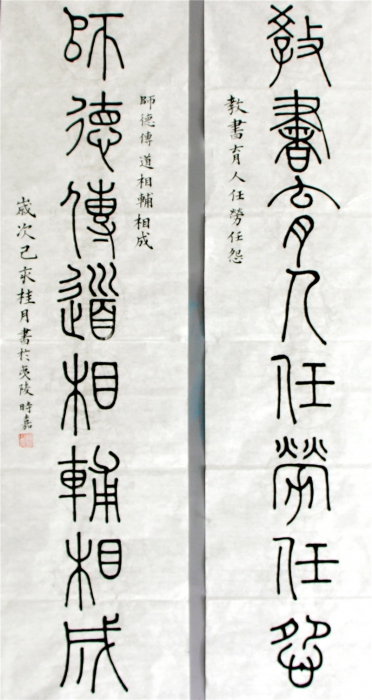 教書育人任勞任怨
教書育人任勞任怨
師德傳道相輔相成
師德傳道相輔相成
歲次己亥桂月書於夷陵時嘉